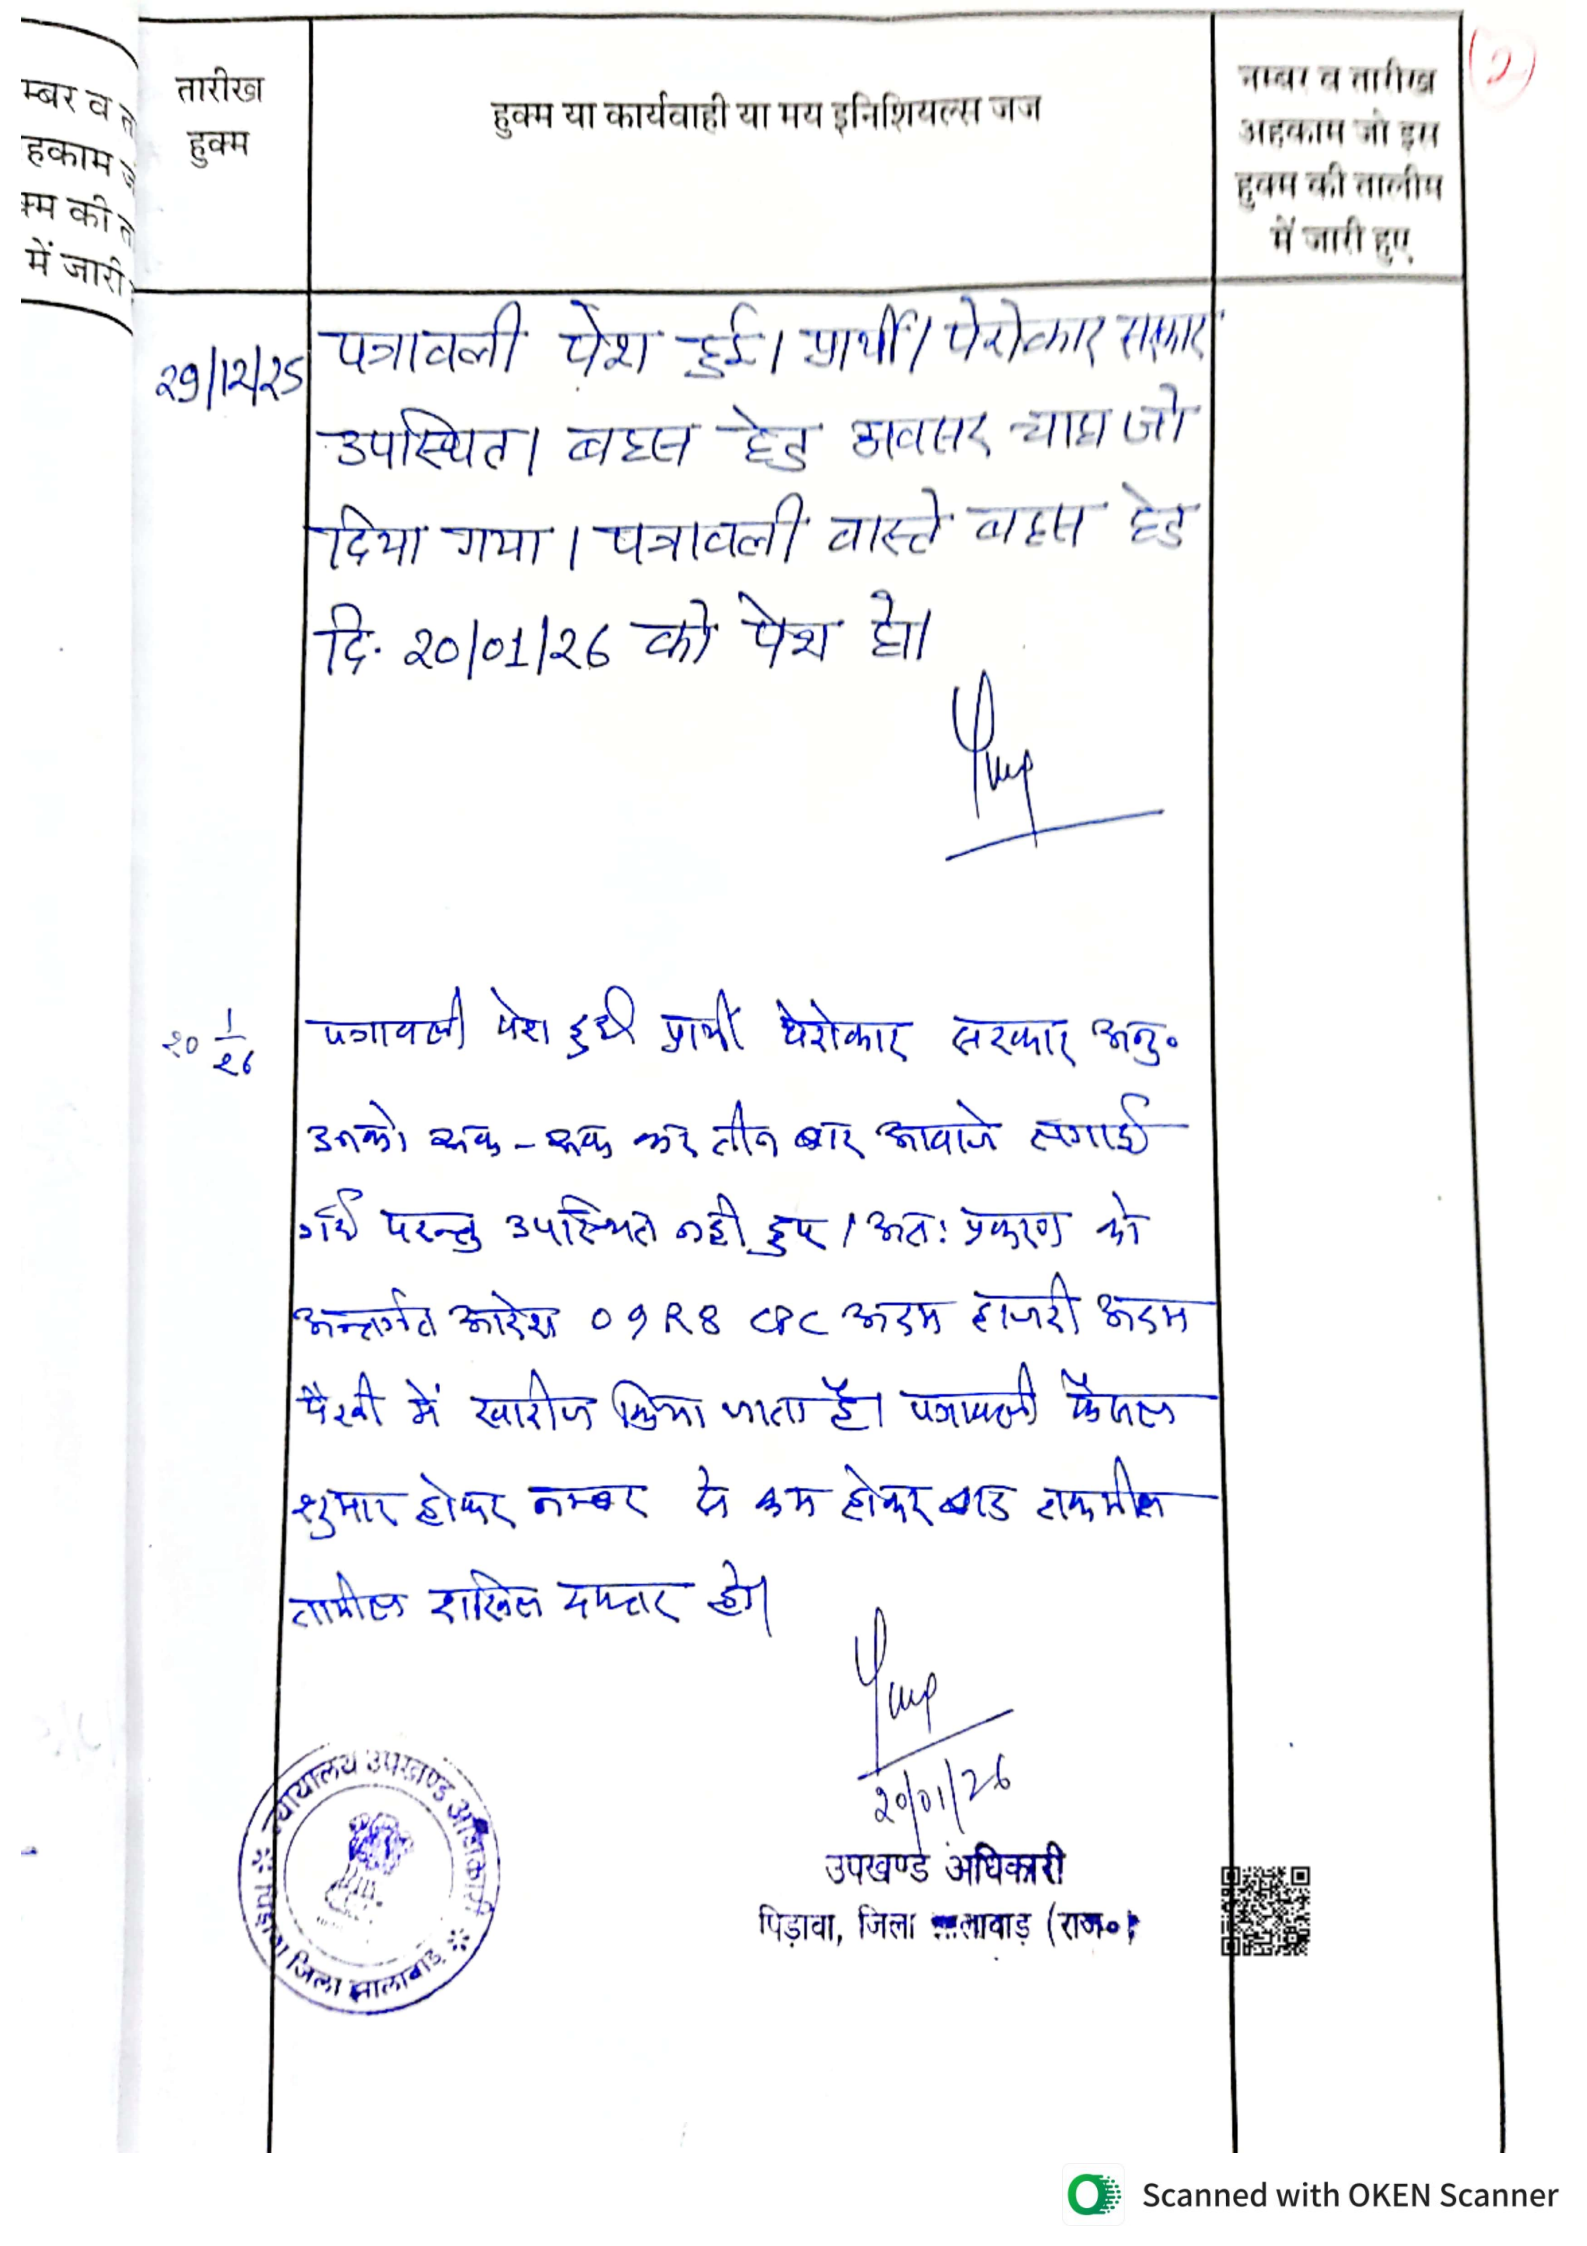 म्बर व त
हकाम ज
क्म की त
में जारी
तारीख
हुक्म
हुक्म या कार्यवाही या मय इनिशियल्स जज
नम्बर व तारीख
अहकाम जो इस
हुक्म की तालीम
में जारी हुए
2
29/12/25
पत्रावली पेश हुई। प्रार्थी/ पेरोकार सरकार
उपस्थित। बहस हेतु अवसर चाहा जो
दिया गया। पत्रावली वास्ते बहस हेतु
दि. 20/01/26 को पेश हो।
20 1/26
पत्रावली पेश हुयी प्रार्थी पेरोकार सरकार अनु०
उनको एक-एक कर तीन बार आवाजे लगाई
गयी परन्तु उपस्थित नही हुए। अतः प्रकरण को
अन्तर्गत आदेश 09 R8 CPC अदम हाजरी अदम
पैरवी में खारीज किया जाता है। पत्रावली फैसल
शुमार होकर नम्बर से कम होकर बाद तकमील
तामील दाखिल दफ्तर हो।
20/01/26
उपखण्ड अधिकारी
पिड़ावा, जिला झालावाड़ (राज०)
न्यायालय उपखण्ड अधिकारी
पिड़ावा जिला झालावाड़
Scanned with OKEN Scanner